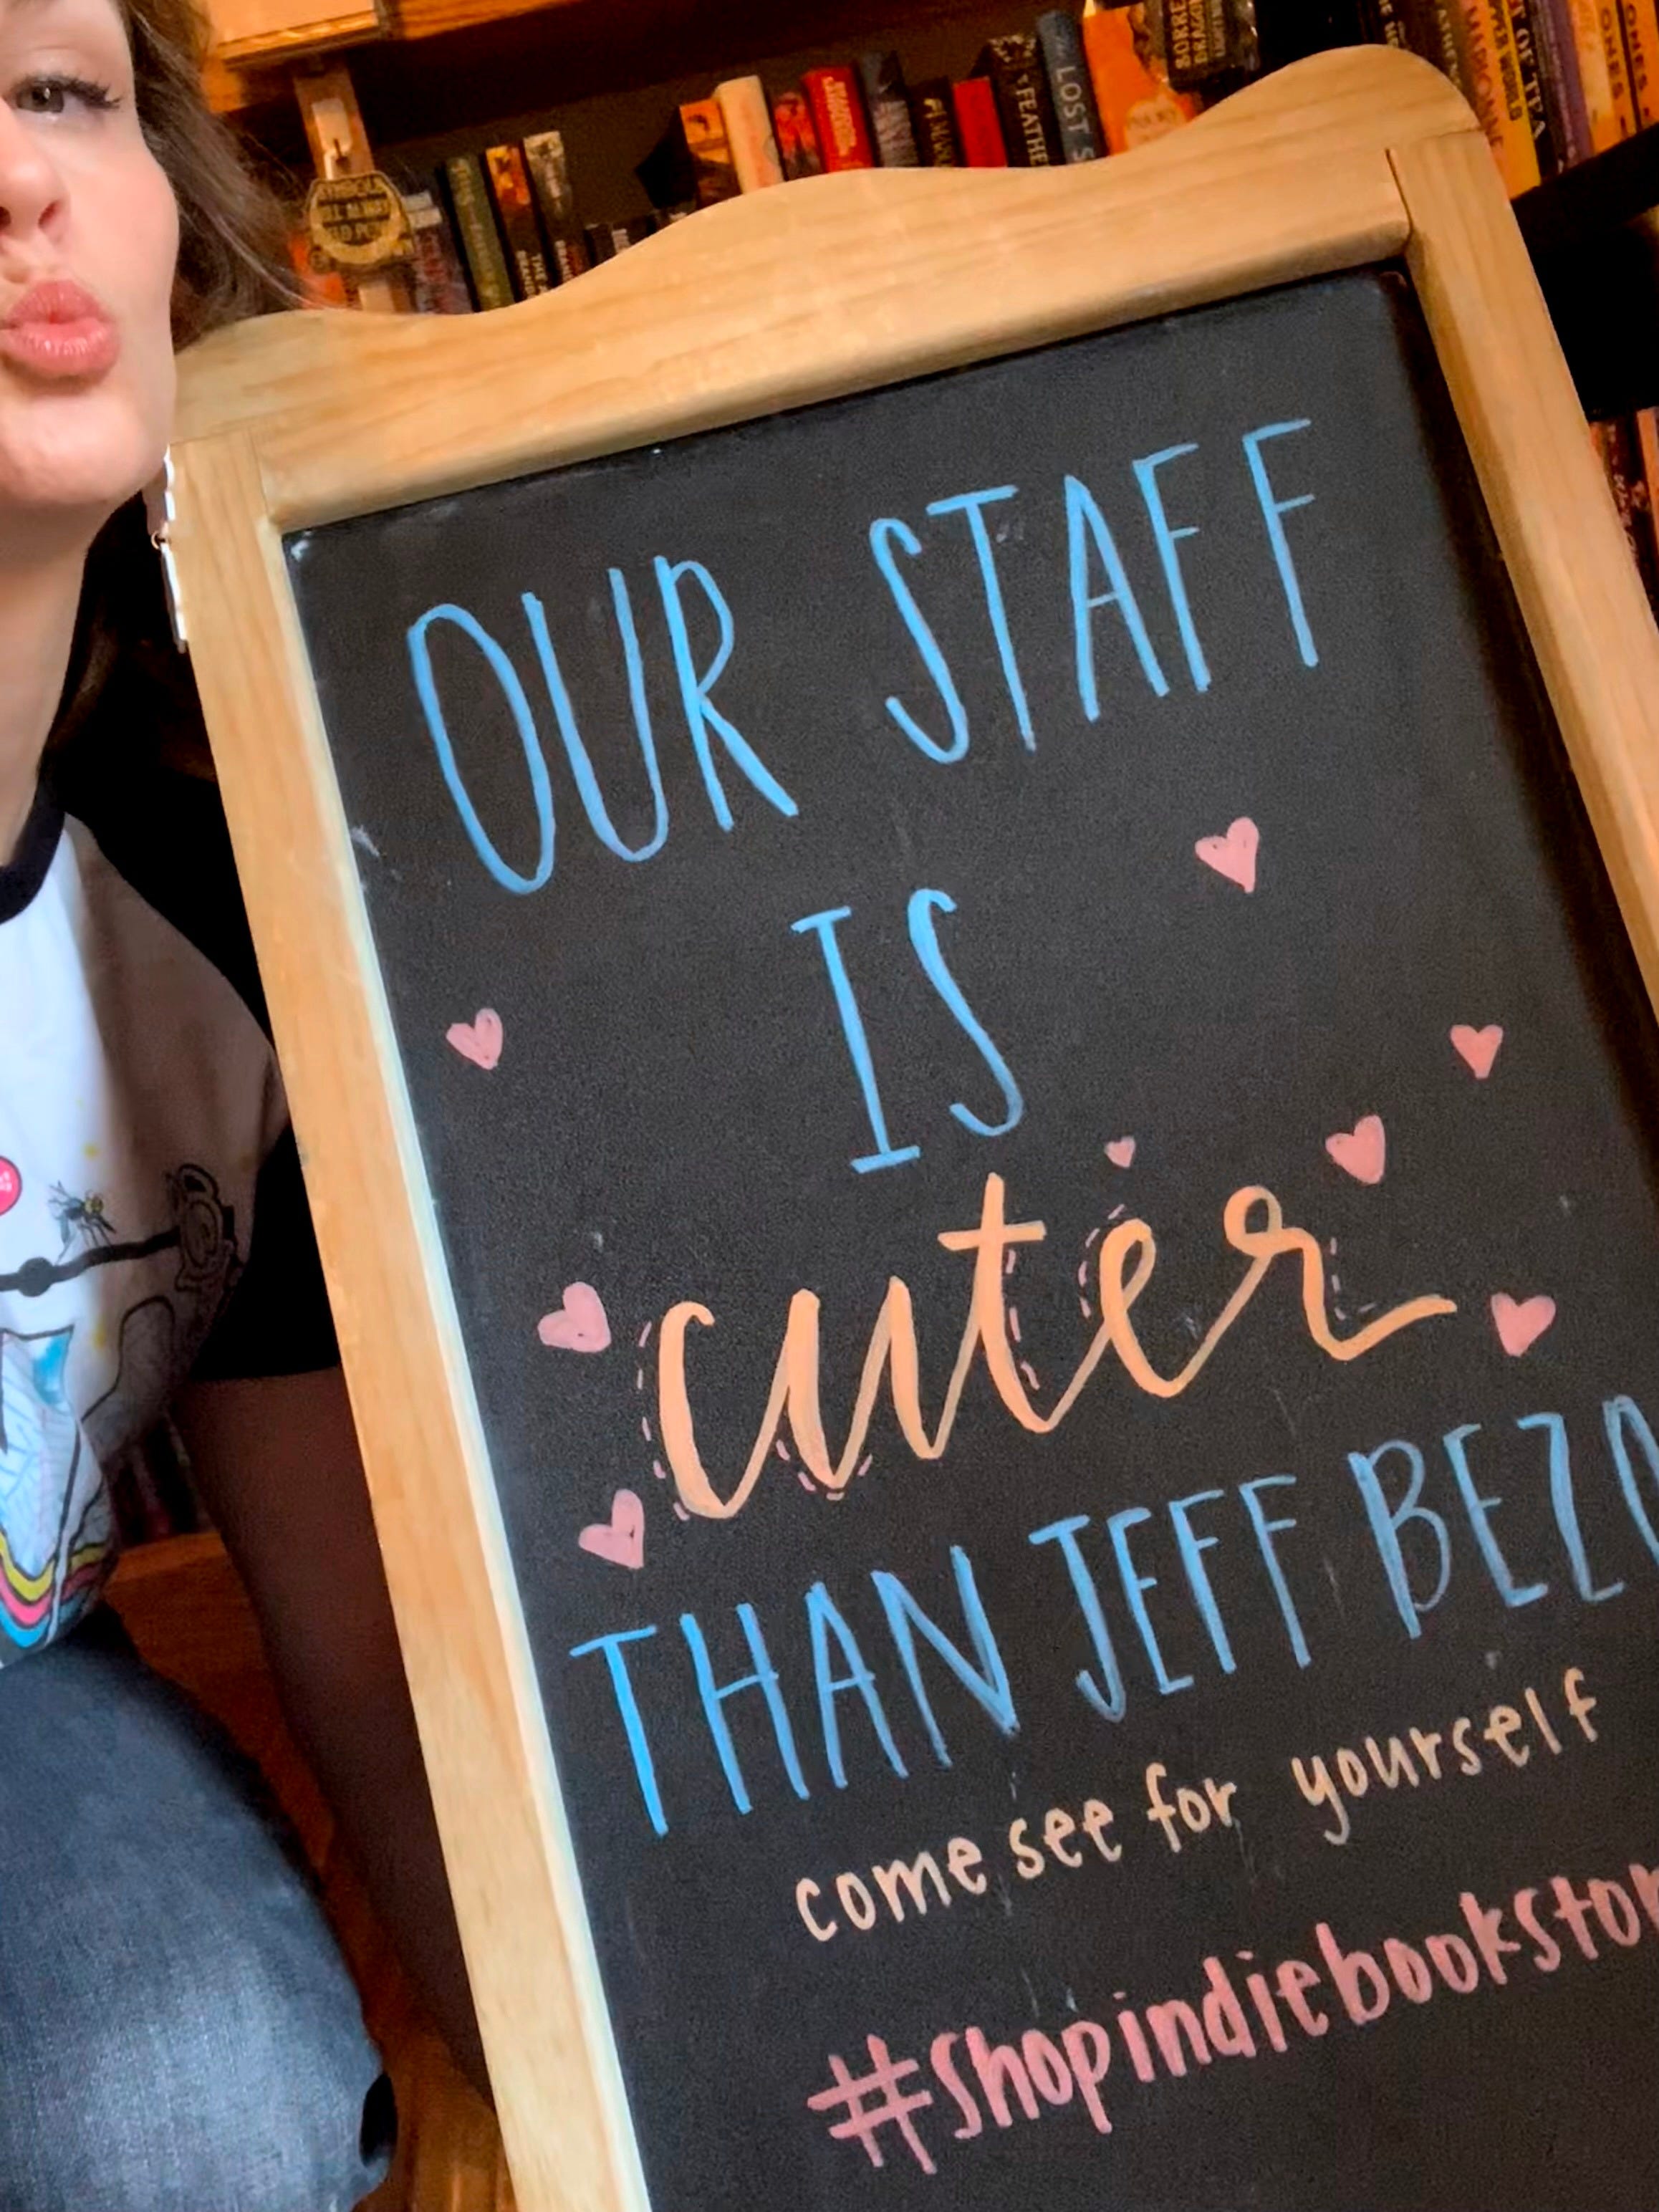 LOST
FEATHE
OUR STAFF
IS
cuter
THAN JEFF BEZO
come see for yourself
#shopindiebookstor